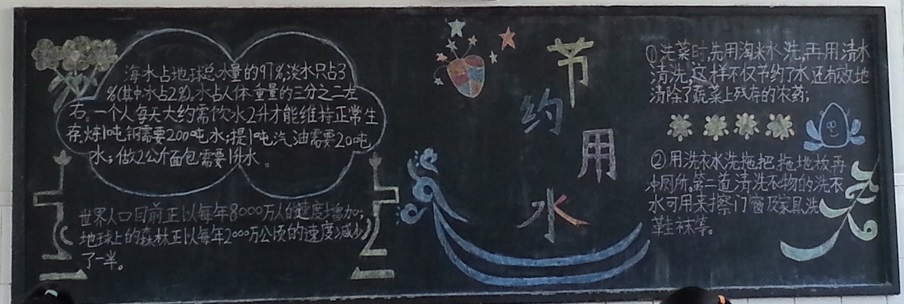 海水占地球总水量的97%,淡水只占3
%(其中冰占2%),水占人体重量的三分之二左
右。一个人每天大约需饮水2升才能维持正常生
存,炼1吨钢需要200吨水;提1吨汽油需要20吨
水;做2公斤面包需要1升水。
世界人口目前正以每年8000万人的速度增加;
地球上的森林正以每年2000万公顷的速度减少
了一半。
节
约
用
水
①洗菜时,先用淘米水洗,再用清水
清洗,这样不仅节约了水,还有效地
清除了蔬菜上残存的农药;
②用洗衣水洗拖把、拖地板、再
冲厕所。第二道清洗衣物的洗衣
水可用来擦门窗及家具、洗
鞋袜等。